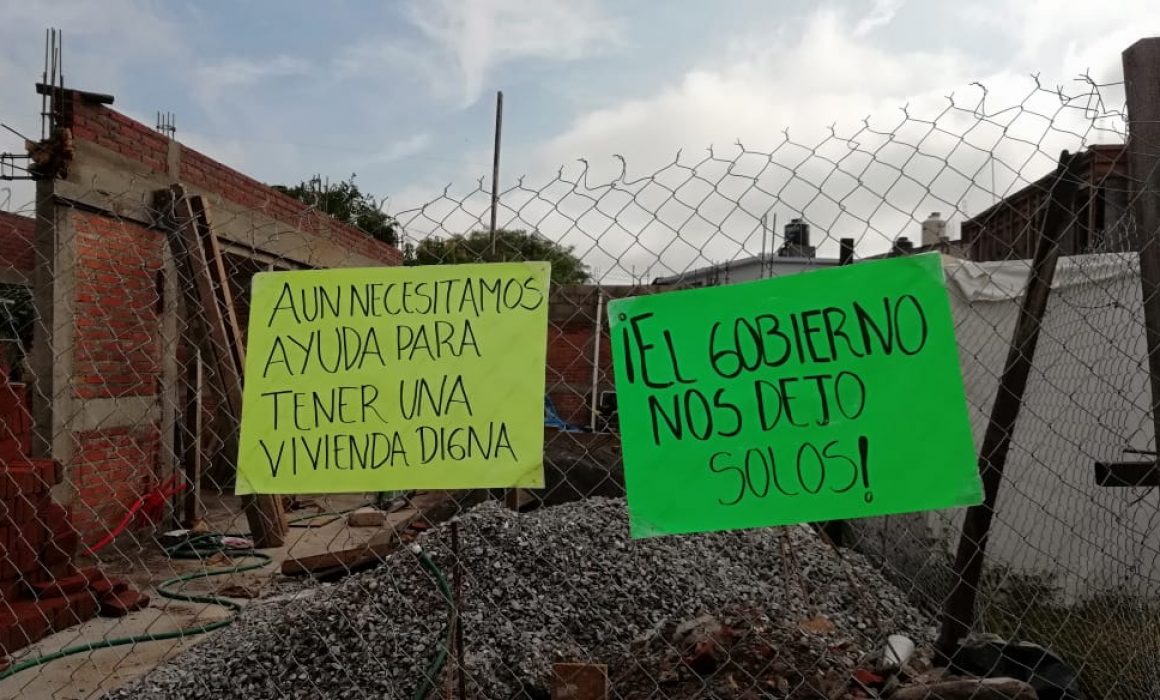 AUN NECESITAMOS
AYUDA PARA
TENER UNA
VIVIENDA DIGNA
¡EL GOBIERNO
NOS DEJO
SOLOS!